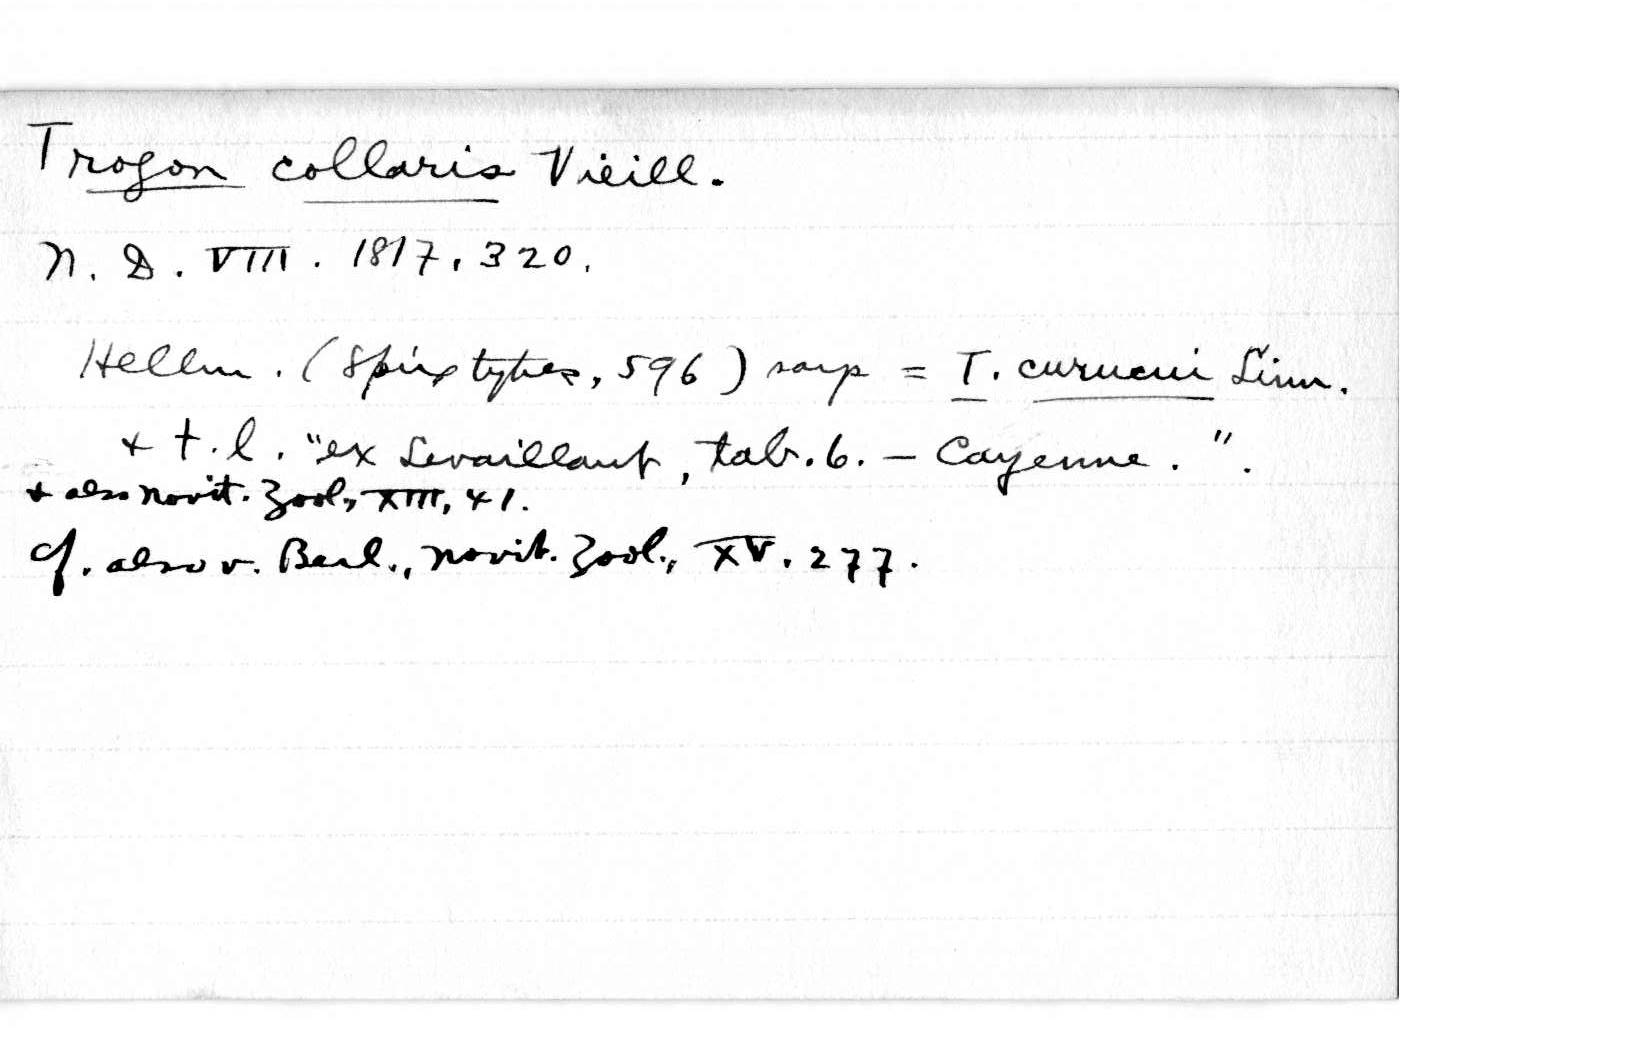 Trogon collaris Vieill.
N. D. VIII. 1817, 320.
Hellm. (Spix types, 596) says = T. curucui Linn.
+ t.l. "ex Levaillant, tab. 6. – Cayenne.".
+ also Novit. Zool., XIII, 41.
cf. also v. Berl., Novit. Zool., XV. 277.